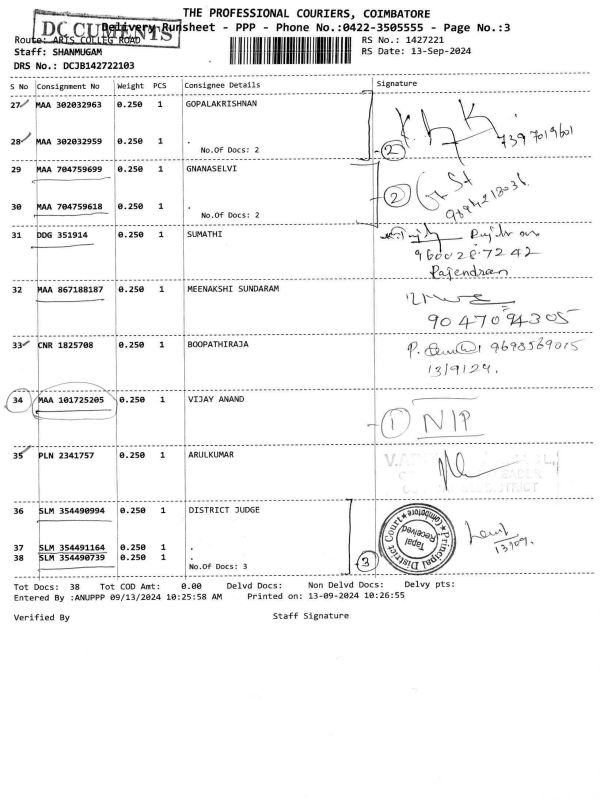 THE PROFESSIONAL COURIERS, COIMBATORE
DOCUMENTS
Delivery Runsheet - PPP - Phone No.:0422-3505555 - Page No.:3
Route: ARTS COLLEG ROAD RS No.: 1427221
Staff: SHANMUGAM RS Date: 13-Sep-2024
DRS No.: DCJB142722103
S No Consignment No Weight PCS Consignee Details Signature
27 MAA 302032963 0.250 1 GOPALAKRISHNAN
28 MAA 302032959 0.250 1 . 2 7397019601
No.Of Docs: 2
29 MAA 704759699 0.250 1 GNANASELVI
2
30 MAA 704759618 0.250 1 .
No.Of Docs: 2
31 DDG 351914 0.250 1 SUMATHI
960028.7242
Rajendran
32 MAA 867188187 0.250 1 MEENAKSHI SUNDARAM
9047094305
33 CNR 1825708 0.250 1 BOOPATHIRAJA P. 9698569015
13/9/24.
34 MAA 101725205 0.250 1 VIJAY ANAND
1 N/P
35 PLN 2341757 0.250 1 ARULKUMAR
36 SLM 354490994 0.250 1 DISTRICT JUDGE
Principal District Court (Coimbatore)
Tapal
Received
13/09.
37 SLM 354491164 0.250 1 .
38 SLM 354490739 0.250 1 .
No.Of Docs: 3 3
Tot Docs: 38 Tot COD Amt: 0.00 Delvd Docs: Non Delvd Docs: Delvy pts:
Entered By :ANUPPP 09/13/2024 10:25:58 AM Printed on: 13-09-2024 10:26:55
Verified By Staff Signature